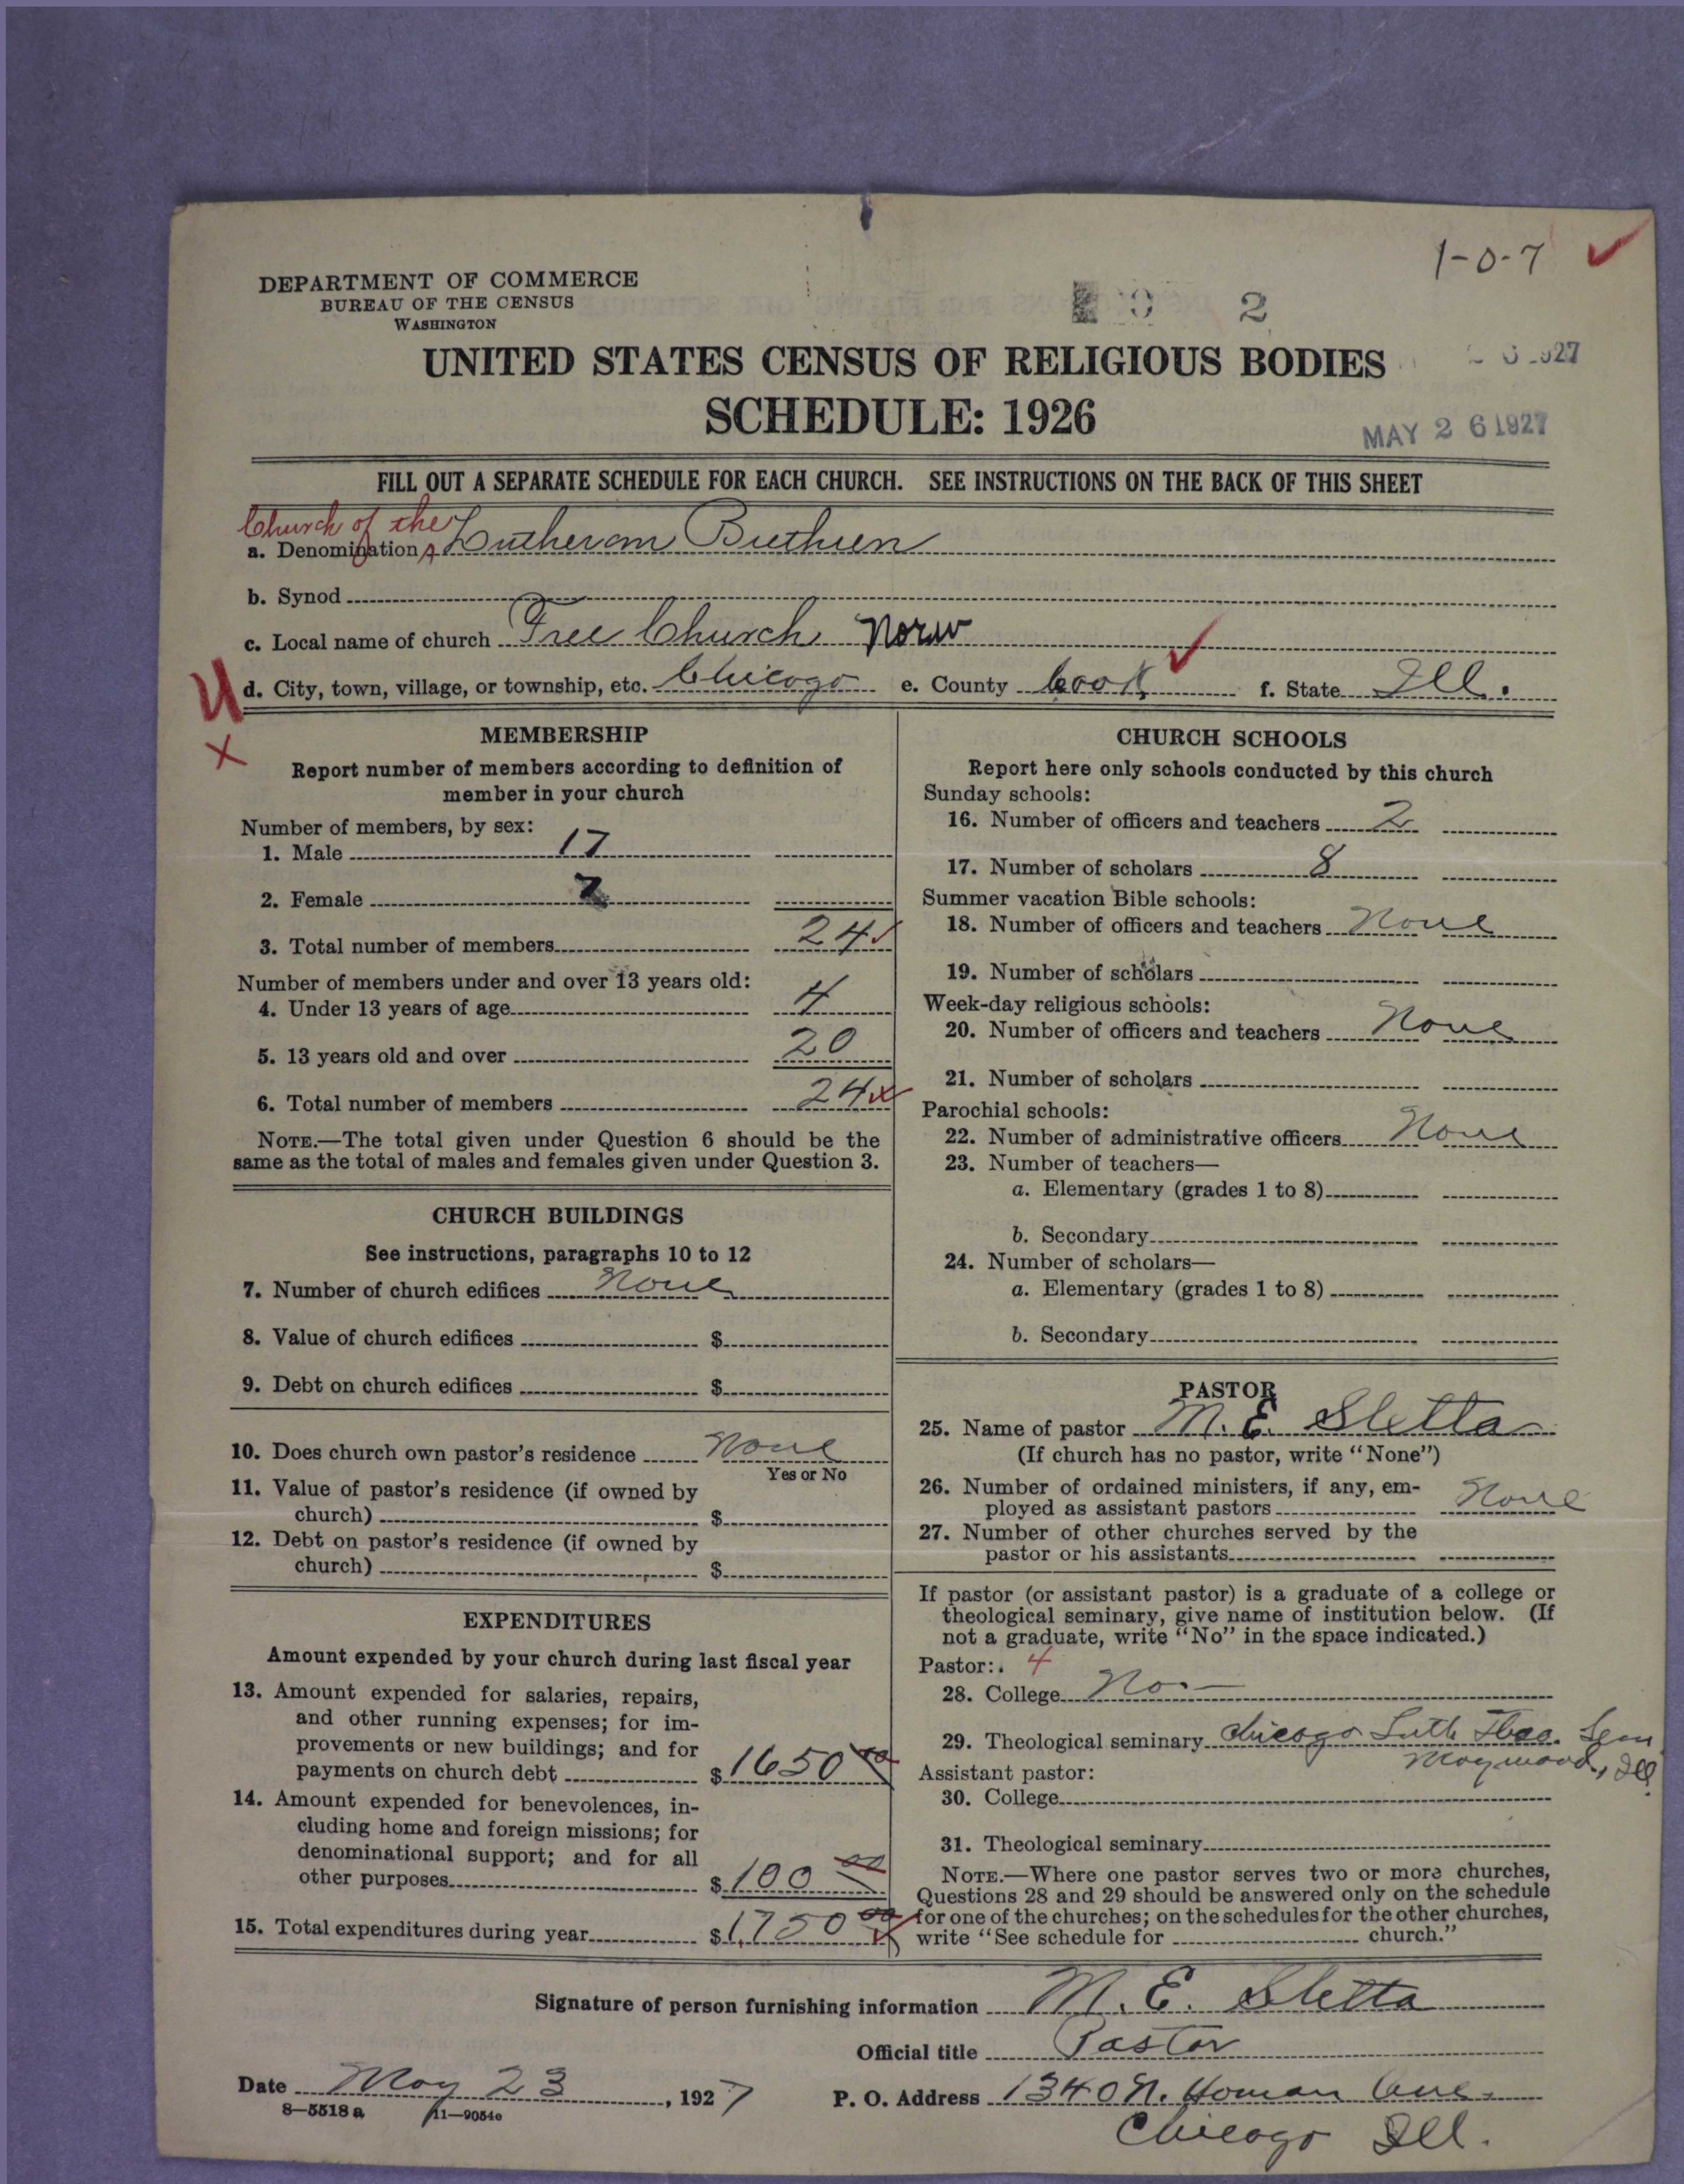 1-0-7
DEPARTMENT OF COMMERCE
BUREAU OF THE CENSUS
WASHINGTON
2
UNITED STATES CENSUS OF RELIGIOUS BODIES
SCHEDULE: 1926
MAY 26 1927
FILL OUT A SEPARATE SCHEDULE FOR EACH CHURCH. SEE INSTRUCTIONS ON THE BACK OF THIS SHEET
Church of the
a. Denomination Lutheran Brethren
b. Synod
c. Local name of church Free Church Norw
d. City, town, village, or township, etc. Chicago e. County Cook f. State Ill.
MEMBERSHIP
Report number of members according to definition of
member in your church
Number of members, by sex:
1. Male 17
2. Female 7
3. Total number of members 24
Number of members under and over 13 years old:
4. Under 13 years of age 4
5. 13 years old and over 20
6. Total number of members 24
NOTE.—The total given under Question 6 should be the
same as the total of males and females given under Question 3.
CHURCH BUILDINGS
See instructions, paragraphs 10 to 12
7. Number of church edifices None
8. Value of church edifices $
9. Debt on church edifices $
10. Does church own pastor's residence None
Yes or No
11. Value of pastor's residence (if owned by
church) $
12. Debt on pastor's residence (if owned by
church) $
EXPENDITURES
Amount expended by your church during last fiscal year
13. Amount expended for salaries, repairs,
and other running expenses; for im-
provements or new buildings; and for
payments on church debt $ 1650 00
14. Amount expended for benevolences, in-
cluding home and foreign missions; for
denominational support; and for all
other purposes $ 100 00
15. Total expenditures during year $ 1,750 00
CHURCH SCHOOLS
Report here only schools conducted by this church
Sunday schools:
16. Number of officers and teachers 2
17. Number of scholars 8
Summer vacation Bible schools:
18. Number of officers and teachers None
19. Number of scholars
Week-day religious schools:
20. Number of officers and teachers None
21. Number of scholars
Parochial schools:
22. Number of administrative officers None
23. Number of teachers—
a. Elementary (grades 1 to 8)
b. Secondary
24. Number of scholars—
a. Elementary (grades 1 to 8)
b. Secondary
PASTOR
25. Name of pastor M. E. Sletta
(If church has no pastor, write "None")
26. Number of ordained ministers, if any, em-
ployed as assistant pastors None
27. Number of other churches served by the
pastor or his assistants
If pastor (or assistant pastor) is a graduate of a college or
theological seminary, give name of institution below. (If
not a graduate, write "No" in the space indicated.)
Pastor: 4
28. College No.—
29. Theological seminary Chicago Luth Theo. Sem
Maywood, Ill
Assistant pastor:
30. College
31. Theological seminary
NOTE.—Where one pastor serves two or more churches,
Questions 28 and 29 should be answered only on the schedule
for one of the churches; on the schedules for the other churches,
write "See schedule for church."
Signature of person furnishing information M. E. Sletta
Official title Pastor
Date May 23, 1927 P. O. Address 1340 N. Homan Ave.
8—5518 a 11—9054c
Chicago Ill.